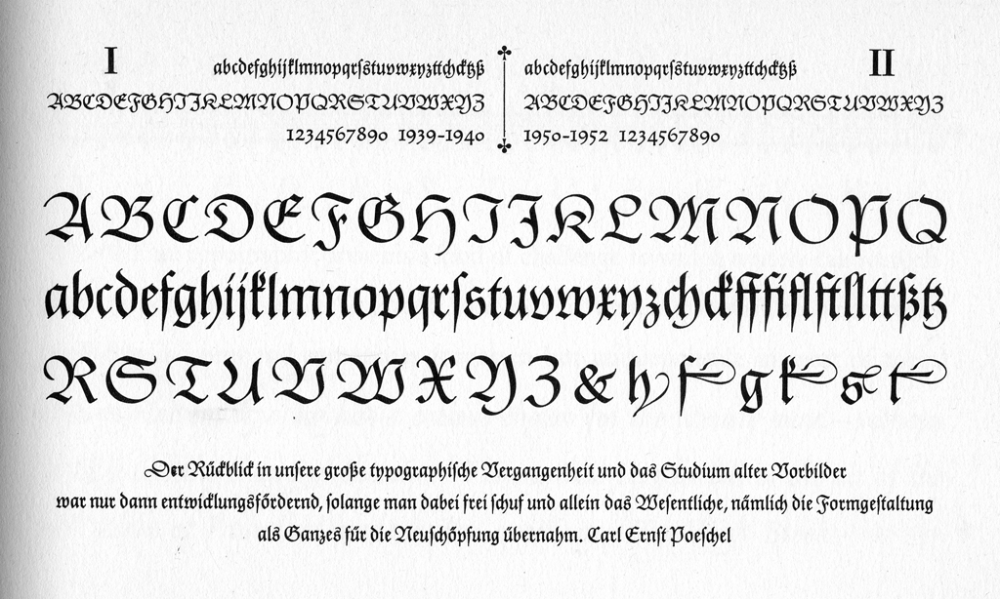 I abcdefghijklmnopqrſstuvwxyzttchcktzß
ABCDEFGHIJKLMNOPQRSTUVWXYZ
1234567890 1939-1940
abcdefghijklmnopqrſstuvwxyzttchcktzß II
ABCDEFGHIJKLMNOPQRSTUVWXYZ
1950-1952 1234567890
ABCDEFGHIJKLMNOPQ
abcdefghijklmnopqrſstuvwxyzchckfffiflſtllttßtz
RSTUVWXYZ&hfgkst
Der Rückblick in unſere große typographiſche Vergangenheit und das Studium alter Vorbilder
war nur dann entwicklungsfördernd, ſolange man dabei frei ſchuf und allein das Weſentliche, nämlich die Formgeſtaltung
als Ganzes für die Neuſchöpfung übernahm. Carl Ernſt Poeſchel